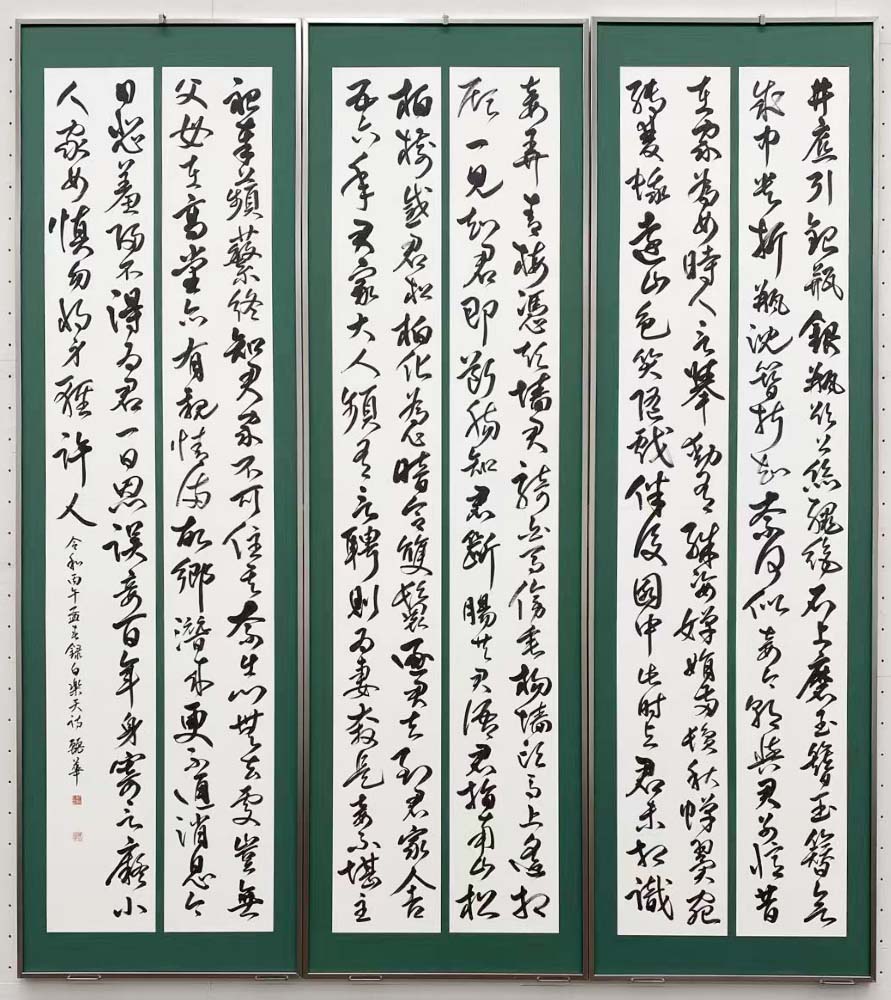 井底引銀瓶銀瓶欲上絲繩絶石上磨玉簪玉簪欲
成中央折瓶沈簪折知奈何似妾今朝與君別憶昔
在家為女時人言舉動有殊姿嬋娟兩鬢秋蝉翼宛
轉雙蛾遠山色笑随戯伴後園中此時与君未相識
妾弄青梅憑短墻君騎白馬傍垂楊墻頭馬上遙相
顧一見知君即断腸知君斷腸共君語君指南山松
柏樹感君松柏化為心暗合雙鬟逐君去到君家舍
五六年君家大人頻有言聘則為妻奔是妾不堪主
祀奉蘋蘩終知君家不可住其奈出門無去處豈無
父母在高堂亦有親情満故郷潛来更不通消息今
日悲羞歸不得為君一日恩誤妾百年身寄言癡小
人家女慎勿将身軽許人
令和丙午孟春録白樂天詩